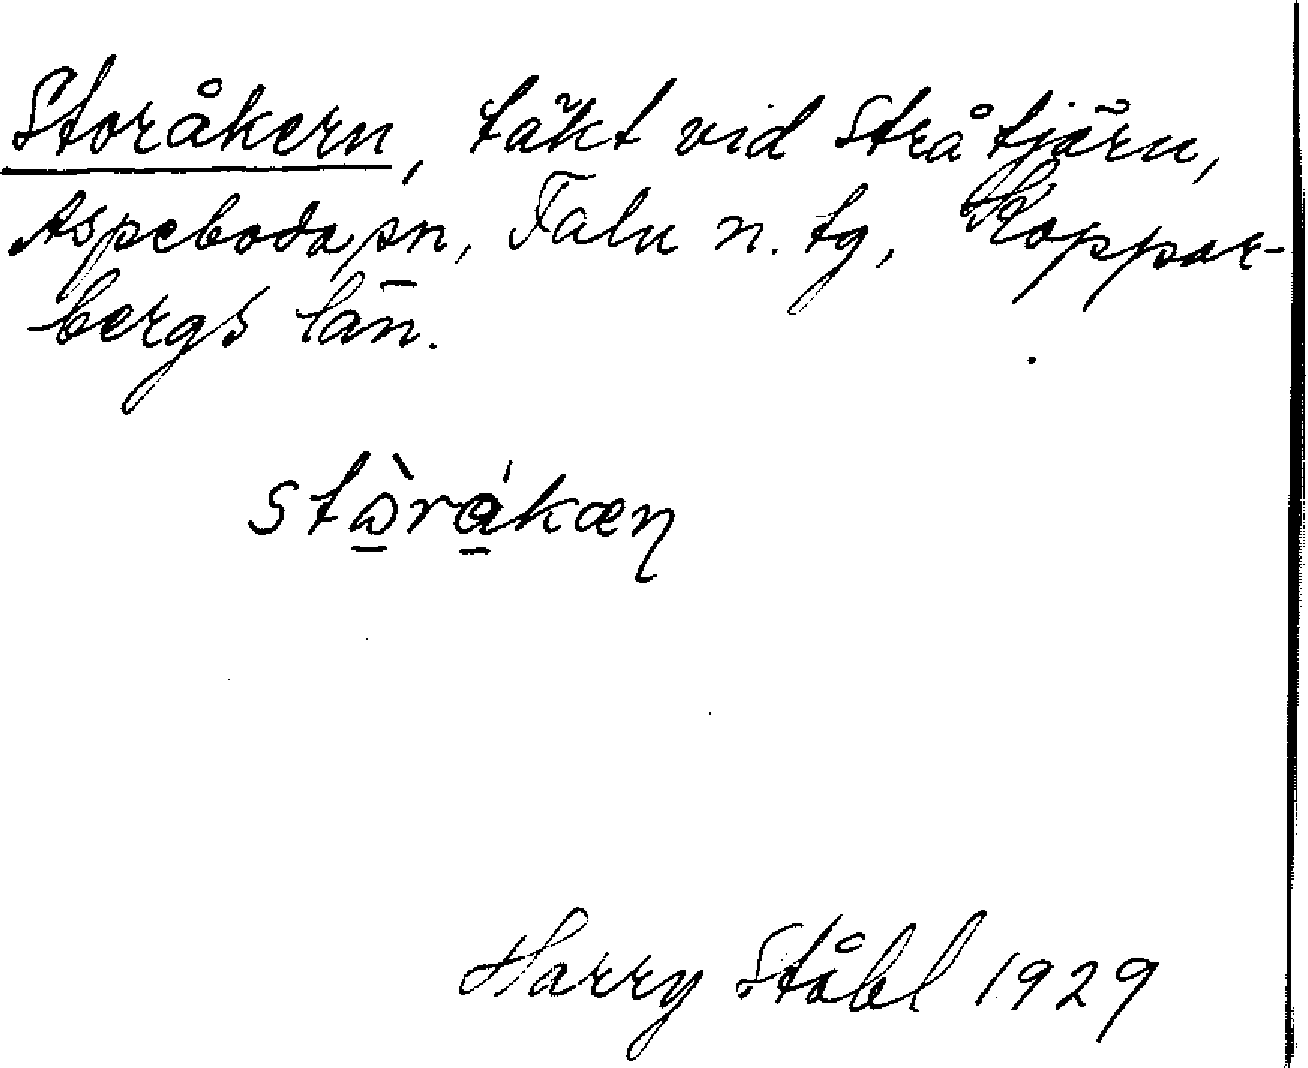 Storåkern, täkt vid Stråtjärn,
Aspeboda sn, Falu n. tg, Koppar-
bergs län.
stὼ̱rá̱kæꞃ
Harry Ståhl 1929